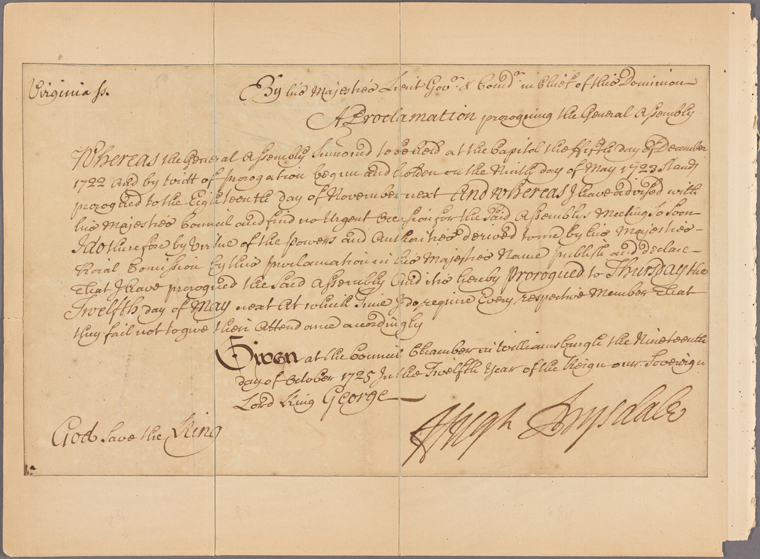 Virginia ss.
By his Majesties Lieut Govr. & Comdr. in Chief of this Dominion
A Proclamation proroguing the General Assembly
Whereas the General Assembly Sumoned to be held at the Capitol the fifth day of December
1722 and by writt of prorogation begun and holden on the Ninth day of May 1723 Stands
prorogued to the Eighteenth day of November next And whereas I have advised with
his Majesties Council and find no Urgent Occasion for the Said Assemblys Meeting So Soon
I do therefore by Virtue of the Powers and Authorities derived to me by his Majesties
Roial Comission by this proclamation in his Majesties Name publish and declare
That I have prorogued the Said Assembly And it is hereby Prorogued to Thursday the
Twelfth day of May next At which time I do require Every respective Member That
they fail not to give their Attendance accordingly
Given at the Council Chamber in Williamsburgh the Nineteenth
day of October 1725 In the Twelfth Year of the Reign our Sovereign
Lord King George
Hugh Drysdale
God Save the King